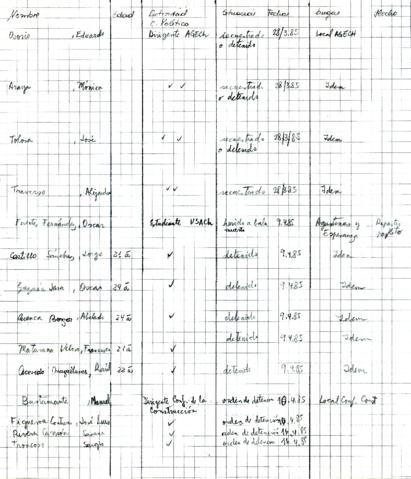 Nombre Edad Actividad C. Político Situación Fecha Lugar Hecho
Osorio, Eduardo Dirigente AGECH secuestrado o detenido 28/3.85 Local AGECH
Araya, Mónica ✓✓ secuestrado o detenido 28/3.85 Idem
Tolosa, José ✓✓ secuestrado o detenido 28/3/85 Idem
Traverso, Alejandro ✓✓ secuestrado 28/3.85 Idem
Fuentes Fernández, Oscar Estudiante USACH herido a bala 9.4.85 y Esperanza
Castillo Sánchez, Jorge 21 a ✓ detenido 9.4.85 Idem
Jara, Oscar 24 a ✓ detenido 9.4.85 Idem
24 a ✓ detenido 9.4.85 Idem
detenido 9.4.85 Idem
Maturana 21 a ✓
Acevedo Raúl 22 a ✓ detenido 9.4.85 Idem
Bustamante, Manuel Dirigente Conf. de la Construcción orden de detención 10.4.85 Local Conf. Const
Figueroa José Luis ✓ orden de detención .4.85
Rivera ✓ orden de detención 14.4.85
Troncoso Sergio ✓ orden de detención 14.4.85